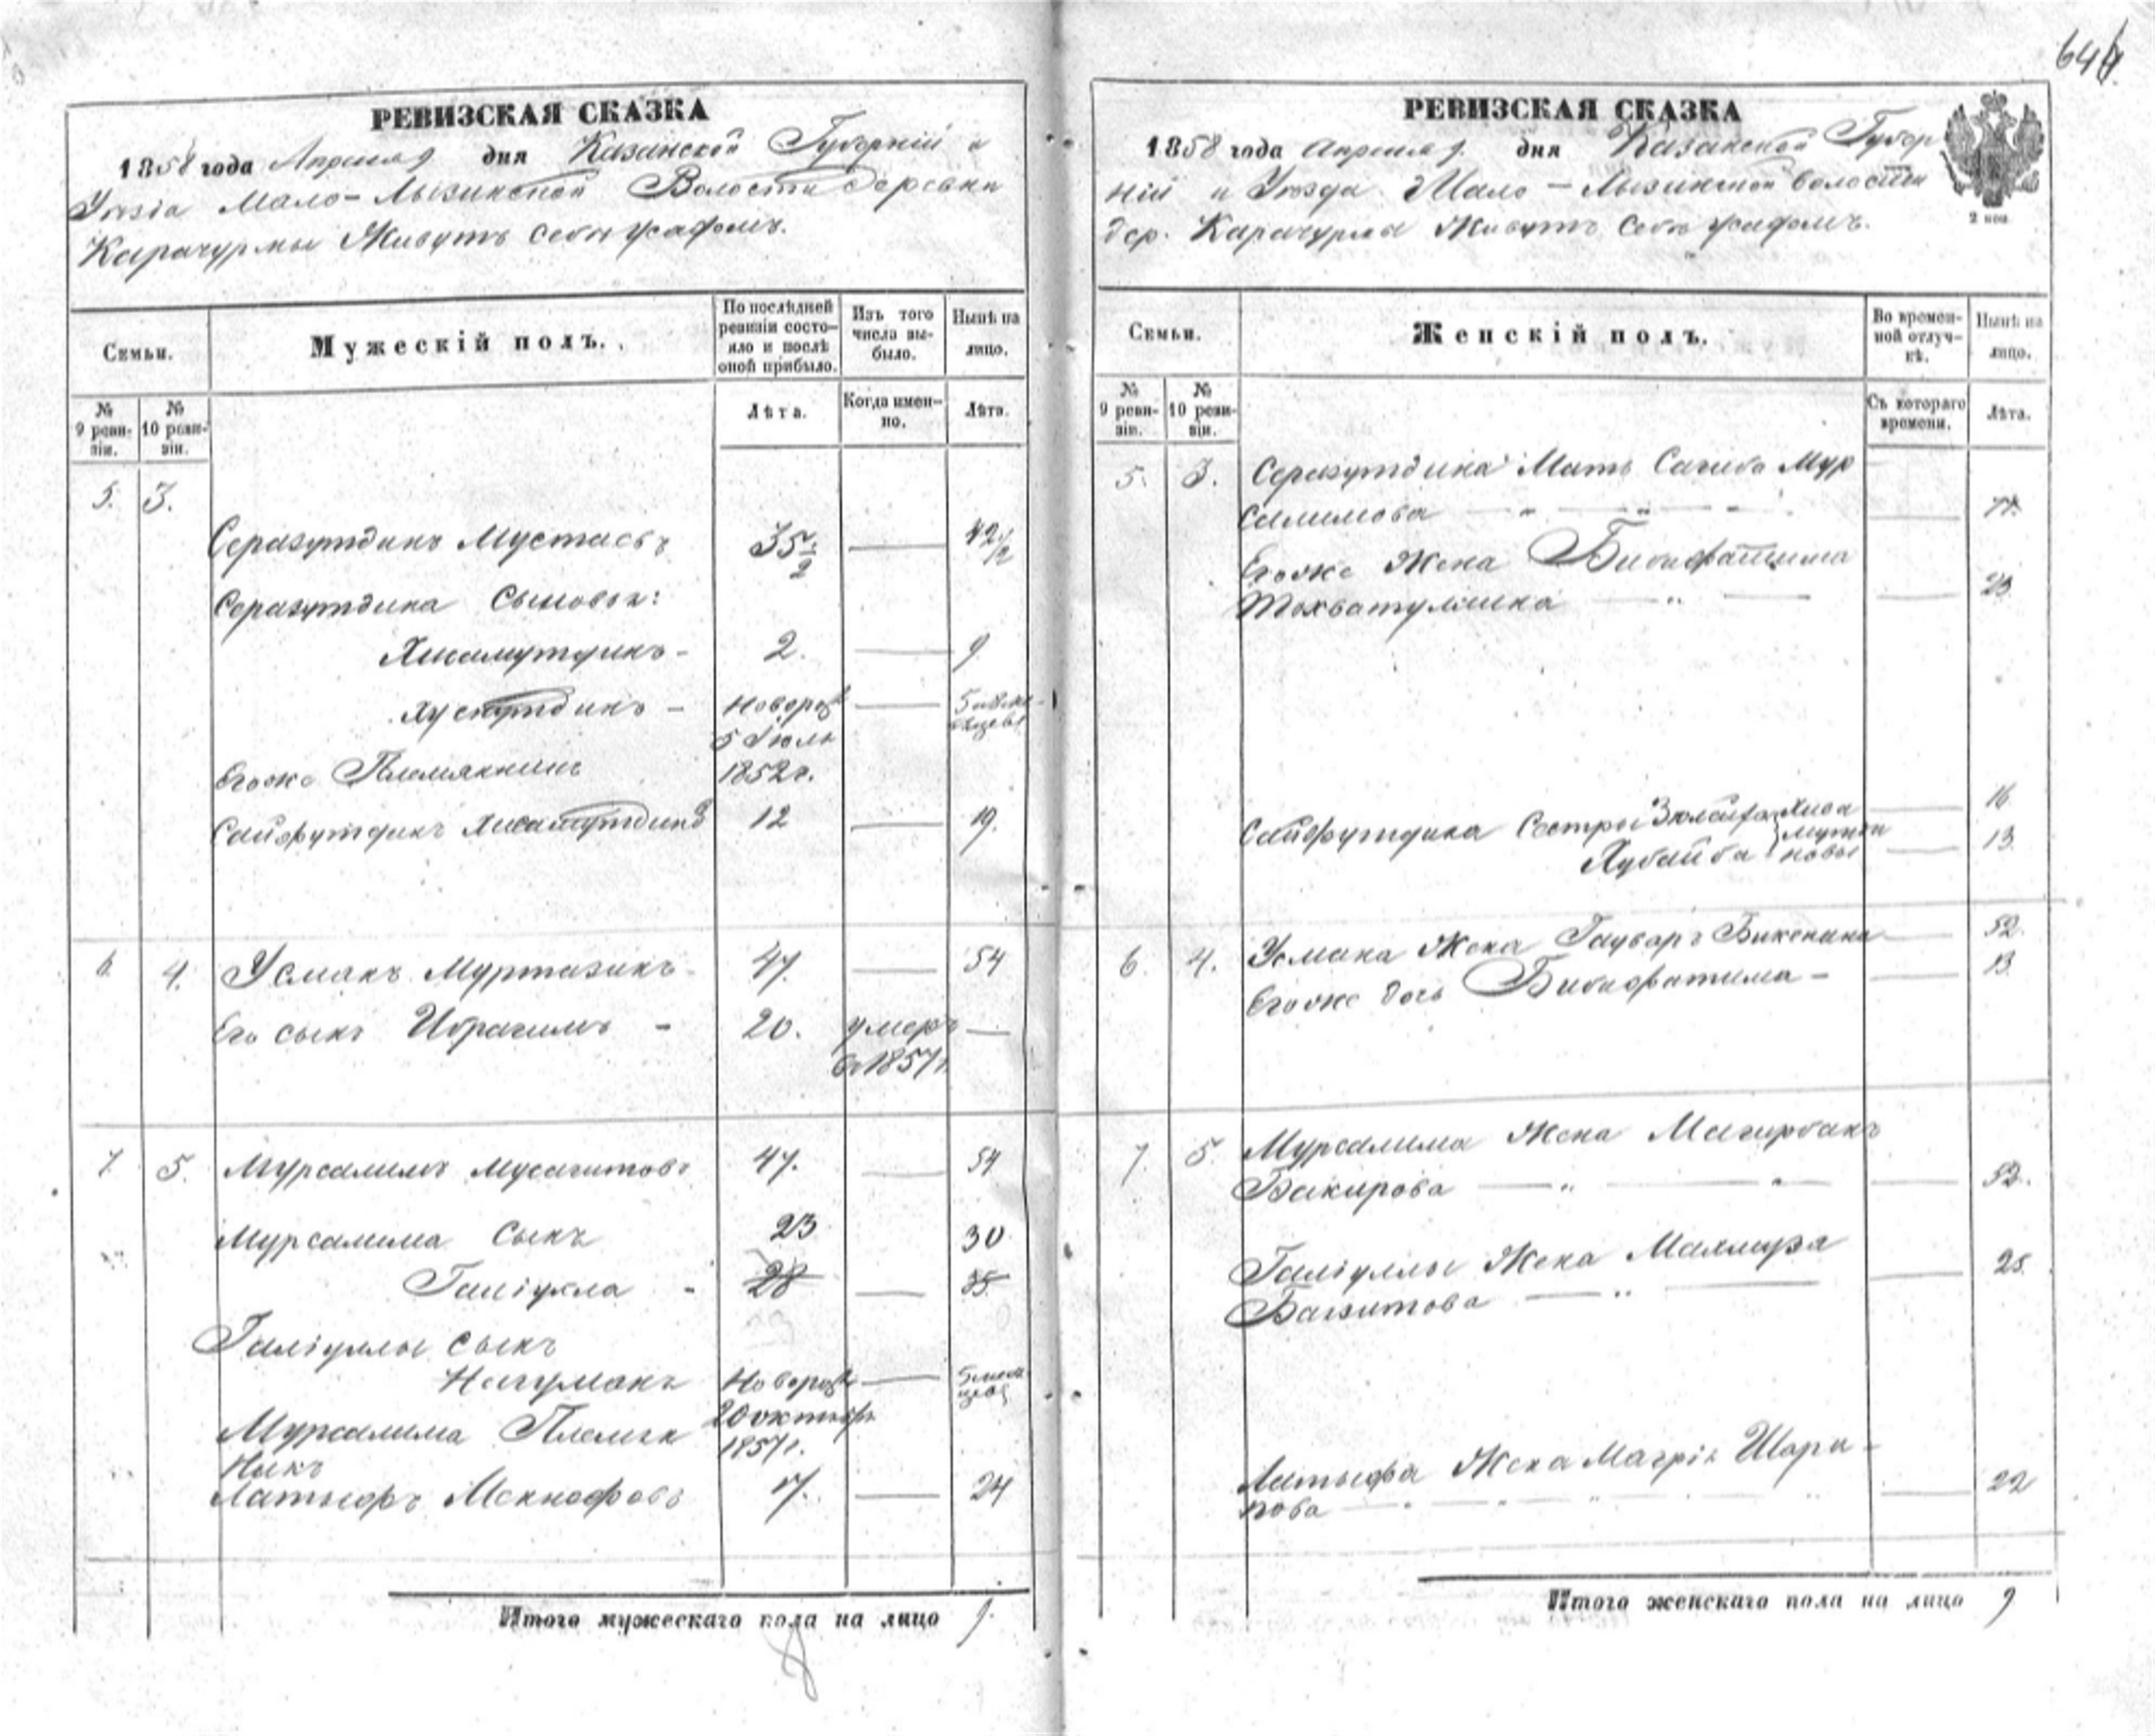 644
РЕВИЗСКАЯ СКАЗКА
1858 года Апреля 9 дня Казанской Губерніи и
Уезда Мало-Лызинской Волости деревни
Карачурмы Живутъ себи
Семьи.
Мужескій полъ.
По послѣдней ревизіи состояло и послѣ оной прибыло.
Изъ того числа выбыло.
Нынѣ на лицо.
№ 9 ревизіи.
№ 10 ревизіи.
Лѣта.
Когда именно.
Лѣта.
5. 3.
Серазутдинъ Мустаевъ 35 1/2 — 42 1/2
Серазутдина Сыновья:
Хисамутдинъ - 2. — 9
- Новорож — 5
5 Іюля
Егоже Племянникъ 1852 г.
Сайфутдинъ Хисамутдинъ 12 — 19.
6. 4. Усманъ Муртазинъ - 47. — 54
Его сынъ Ибрагимъ - 20. умеръ —
въ 1857 г.
7 5. Мурсалимъ Мусагитовъ 47. — 54
Мурсалима Сынъ 23 30
Галіулла - 28 — 35
Галіуллы сынъ
Нагуманъ Новорож — 5 месяцев
Мурсалима Племян 20 октября
никъ 1857 г.
Латыфъ Мекнофовъ 17. — 24
Итого мужескаго пола на лицо 9.
8
РЕВИЗСКАЯ СКАЗКА
1858 года Апреля 9. дня Казанской Губер
ніи и Уезда Мало-Лызинской волости
дер. Карачурмы Живутъ себи
2 коп.
Семьи.
Женскій полъ.
Во временной отлучкѣ.
Нынѣ на лицо.
№ 9 ревизіи.
№ 10 ревизіи.
Съ котораго времени.
Лѣта.
5. 3. Серазутдина Мать Сагиба Мур
салимова — — 71.
Егоже Жена Бибифатима
Тохватуллина — — 23
Сайфутдина Сестры Зюлайфа Хиса — 16
Хубайба мутди новы — 13
6. 4. Усмана Жена Гаухаръ Бикенина — 52.
Егоже дочь Бибифатима - — 13
7. 5 Мурсалима Жена Магирбанъ
Бакирова — — 52.
Галіуллы Жена Махмура
Багитова — — 25.
Латыфа Жена Магрія Шари-
пова — — 22
Итого женскаго пола на лицо 9